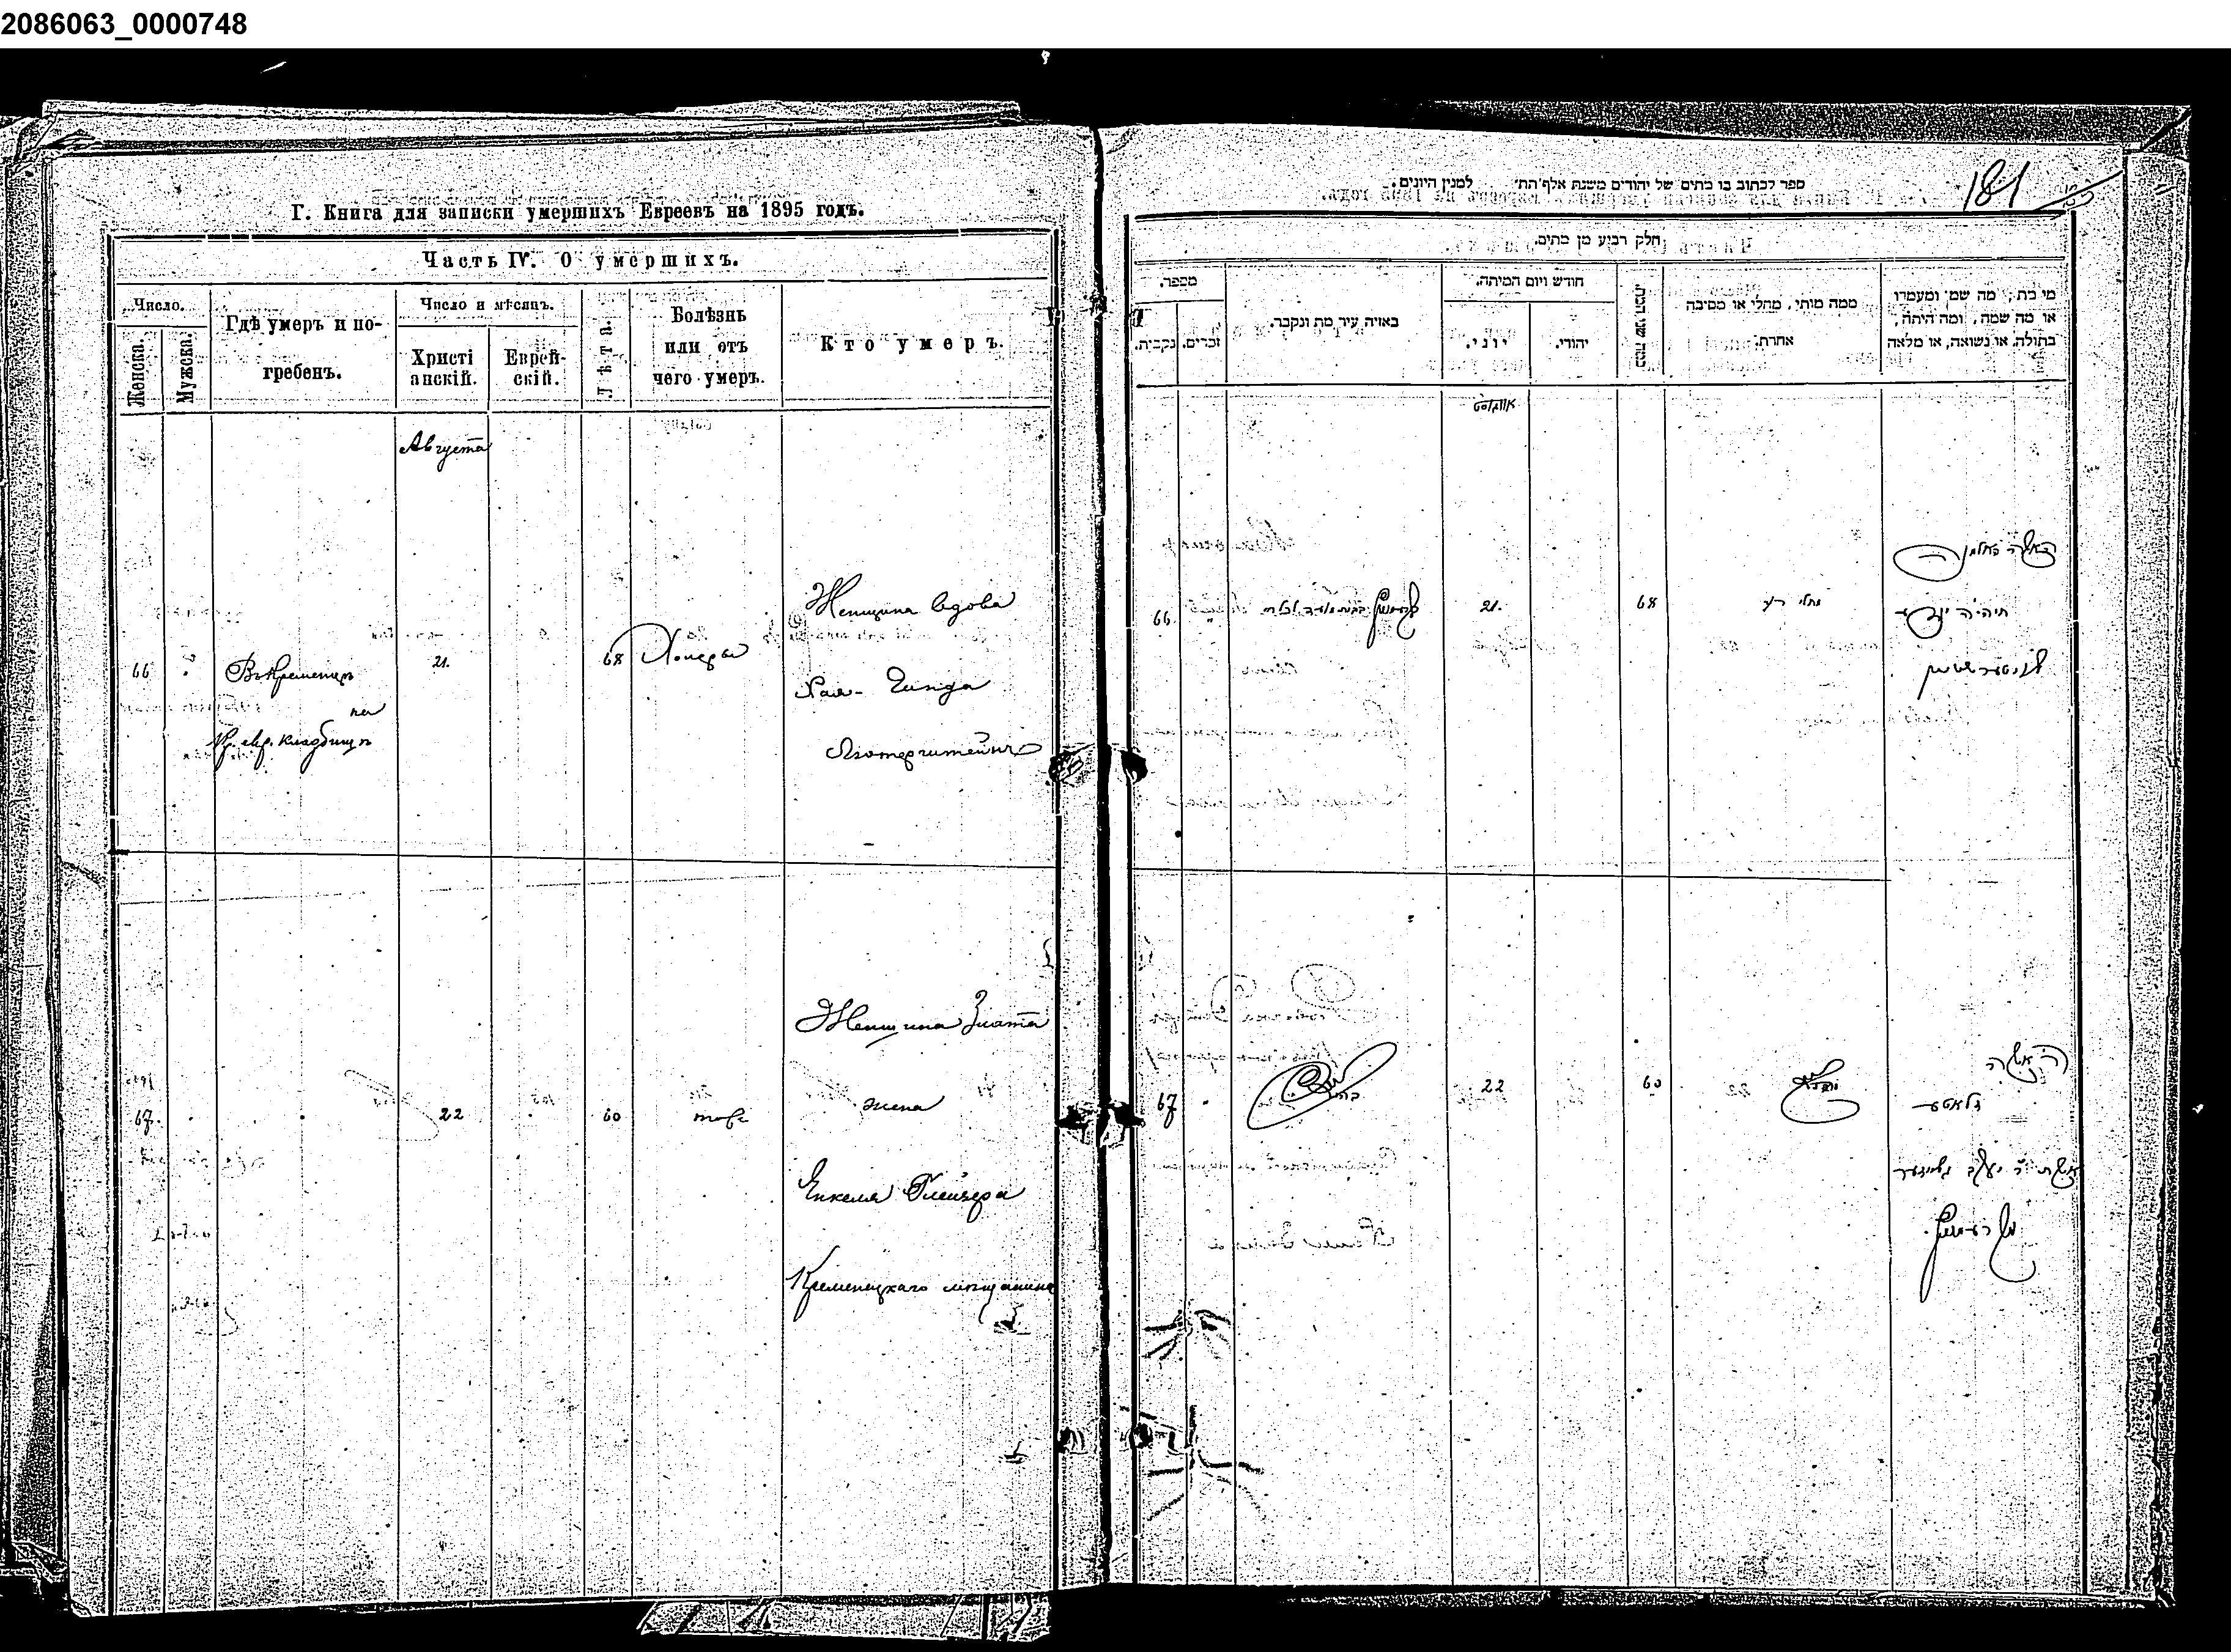 2086063_0000748
Г. Книга для записки умершихъ Евреевъ на 1895 годъ.
Часть IV. О умершихъ.
Число.
Женска.
Мужска.
Гдѣ умеръ и по-
гребенъ.
Число и мѣсяцъ.
Христі
анскій.
Еврей-
скій.
Лѣта.
Болѣзнь
или отъ
чего умеръ.
Кто умеръ.
Августа
66
Въ Кременцѣ
на
Кр. евр. кладбищѣ
21.
68
Холеры
Женщина вдова
Хая-Гинда
Лютерштейнъ
67.
22
60
тоже
Женщина Злата
жена
Енкеля Глейзера
Кременецкаго мѣщанина
181
ספר לכתוב בו מתים של יהודים משנת אלף'תת' למנין היונים.
חלק רביע מן מתים.
מספר.
נקבית.
זכרים.
באיזה עיר מת ונקבר.
חודש ויום המיתה.
יוני.
יהודי.
כמה שני המת.
ממה מותי, מחלי או מסיבה
אחרת.
מי מת, מה שמו ומעמדו
או מה שמה, ומה היתה,
בתולה, או נשואה, או מלאה
אווגוסט
66.
21.
68
האשה
חי'ה
67
22
60
האשה
זלאטע
אשת ר' יעקב גלייזער